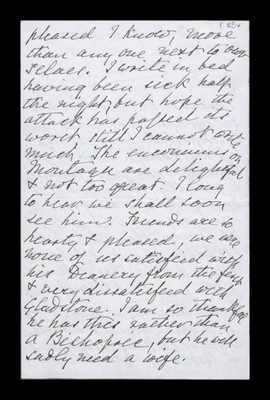 pleased I know, more
than any one next to our
selves. I write in bed
having been sick half
the night, but hope the
attack has passed its
worst still I cannot write
much. The encomiums on
Montagu are delightful
& not too great. I long
to hear we shall soon
see him. Friends are so
hearty & pleased, we are
none of us satisfied with
his Deanery from the first
& very dissatisfied with
Gladstone. I am so thankful
he has this rather than
a Bishopric, but he will
sadly need a wife.